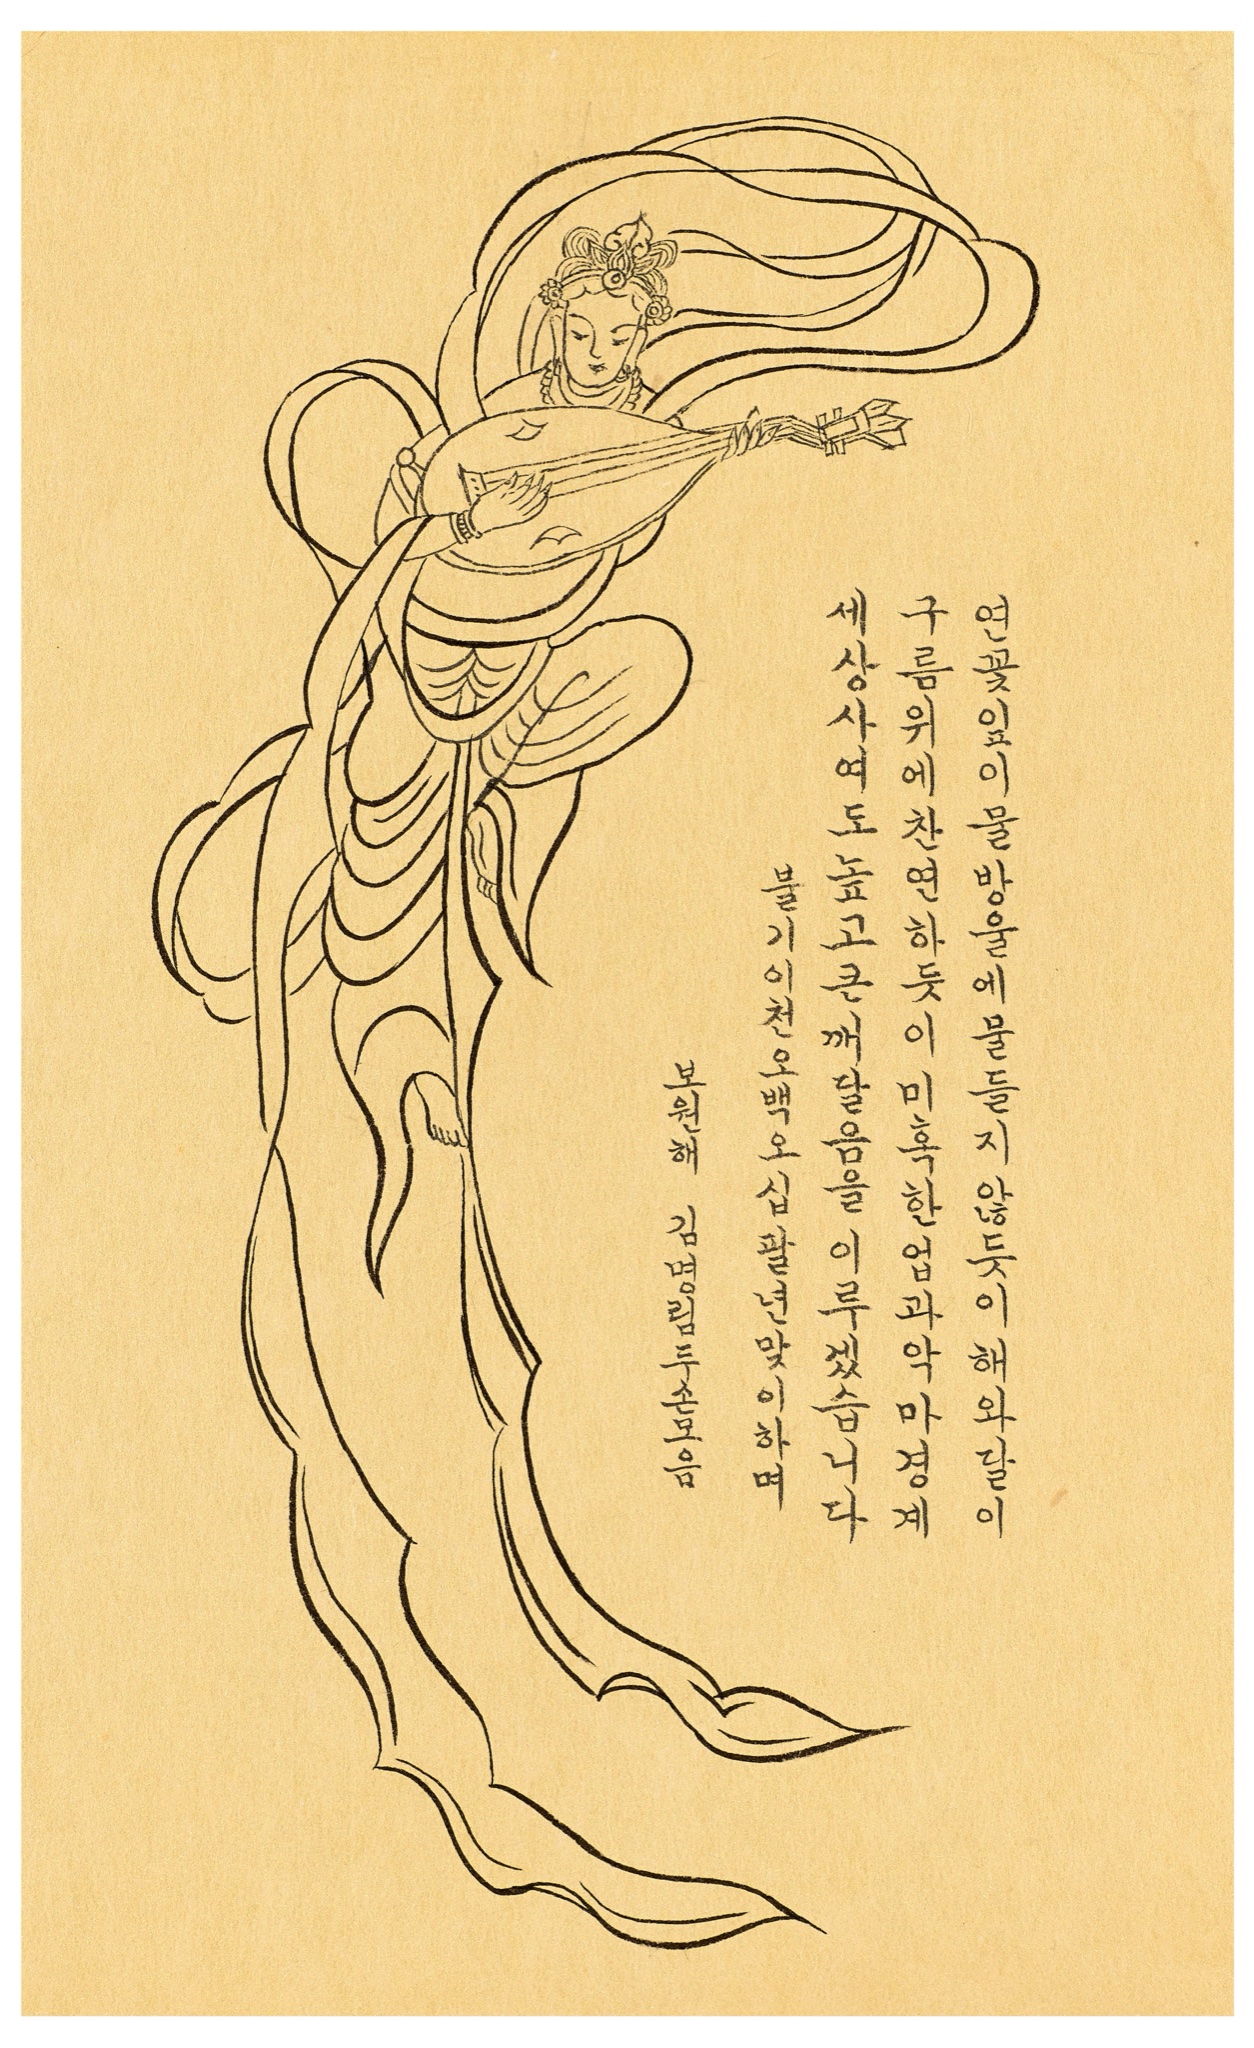 연꽃잎이물방울에물들지않듯이해와달이
구름위에찬연하듯이미혹한업과악마경계
세상사여도높고큰깨달음을이루겠습니다
불기이천오백오십팔년맞이하며
보원해 김명림두손모음